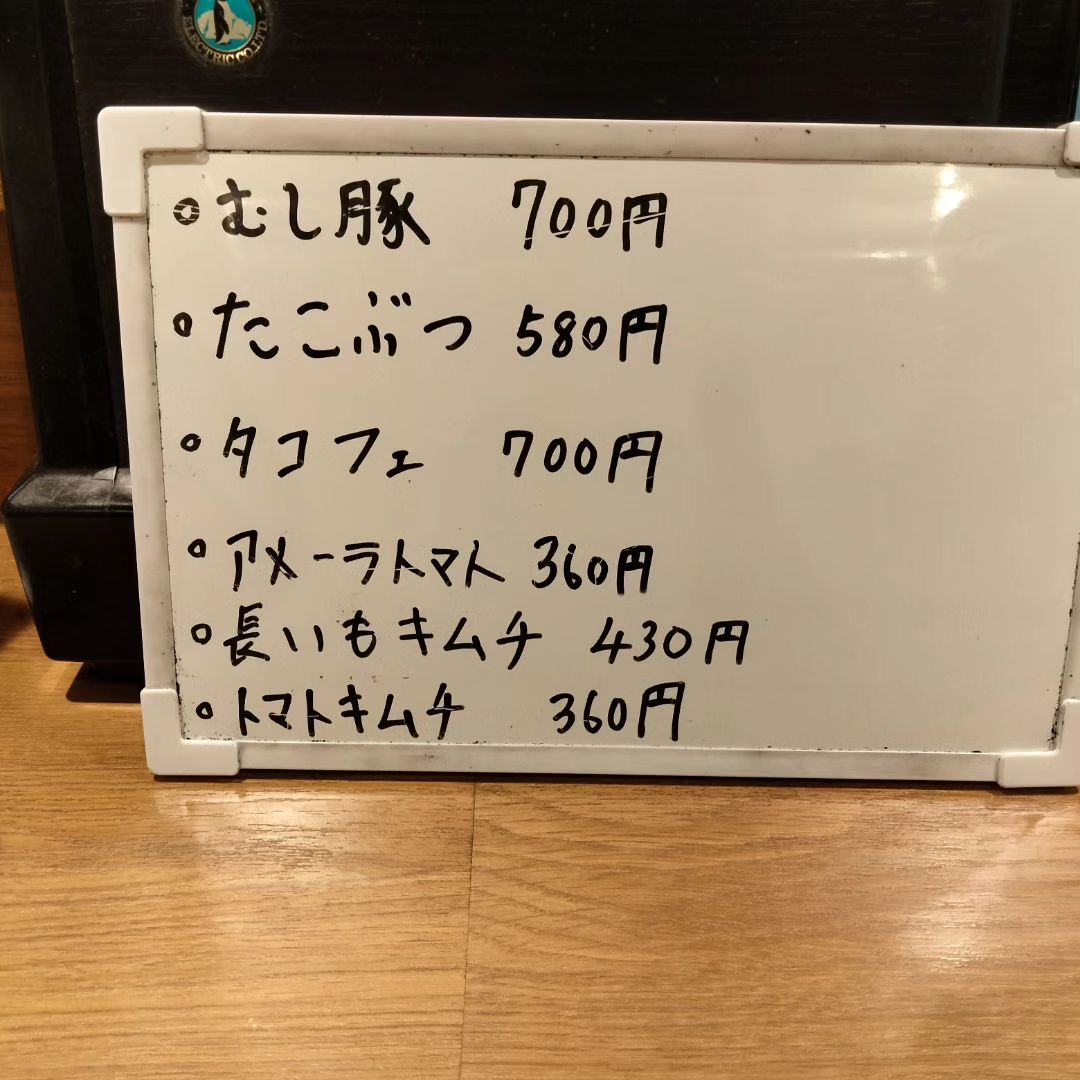 ELECTRIC CO.LTD.
むし豚 700円
たこぶつ 580円
タコフェ 700円
アメーラトマト 360円
長いもキムチ 430円
トマトキムチ 360円